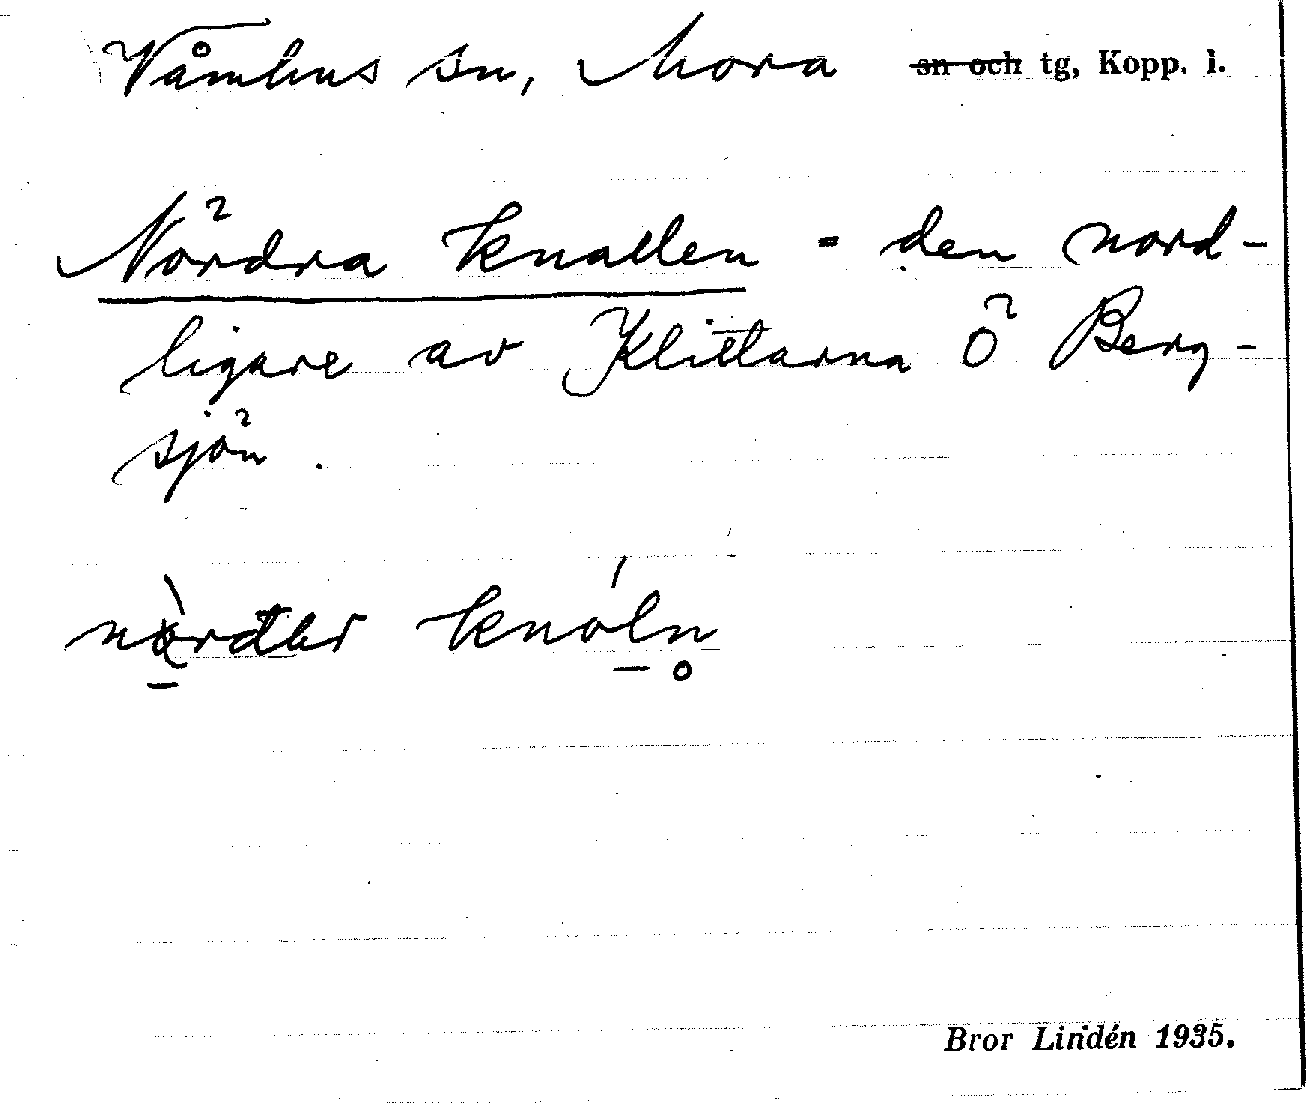 Våmhus sn, Mora ~~sn och~~ tg, Kopp. l.
Nördra knallen = den nord-
ligare av Klittarna Ö Berg-
sjön.
knoln
Bror Lindén 1935.